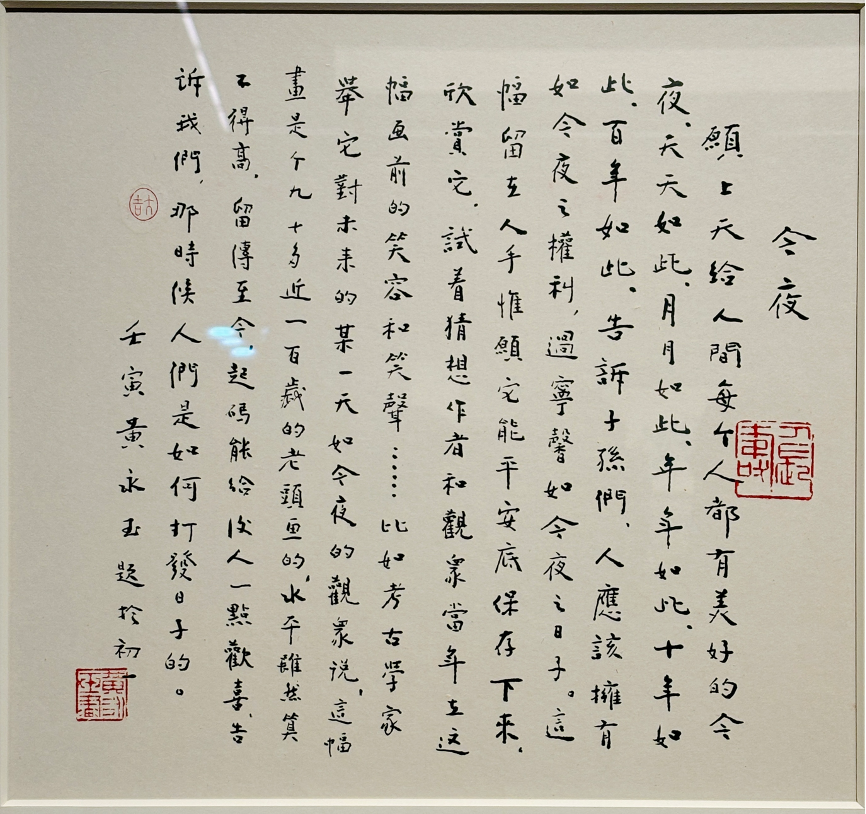 今夜
願上天給人間每个人都有美好的今
夜、天天如此、月月如此、年年如此、十年如
此、百年如此、告訴子孫們、人應該擁有
如今夜之權利，過寧馨如今夜之日子。這
幅留在人手惟願它能平安底保存下来、
欣賞它、試着猜想作者和觀衆當年在这
幅画前的笑容和笑聲……比如考古學家
舉它對未来的某一天如今夜的觀衆说、這幅
畫是个九十多近一百歲的老頭画的、水平雖然算
不得高、留傳至今、起碼能给後人一點歡喜、告
訴我們，那時候人們是如何打發日子的。
壬寅黃永玉題於初一